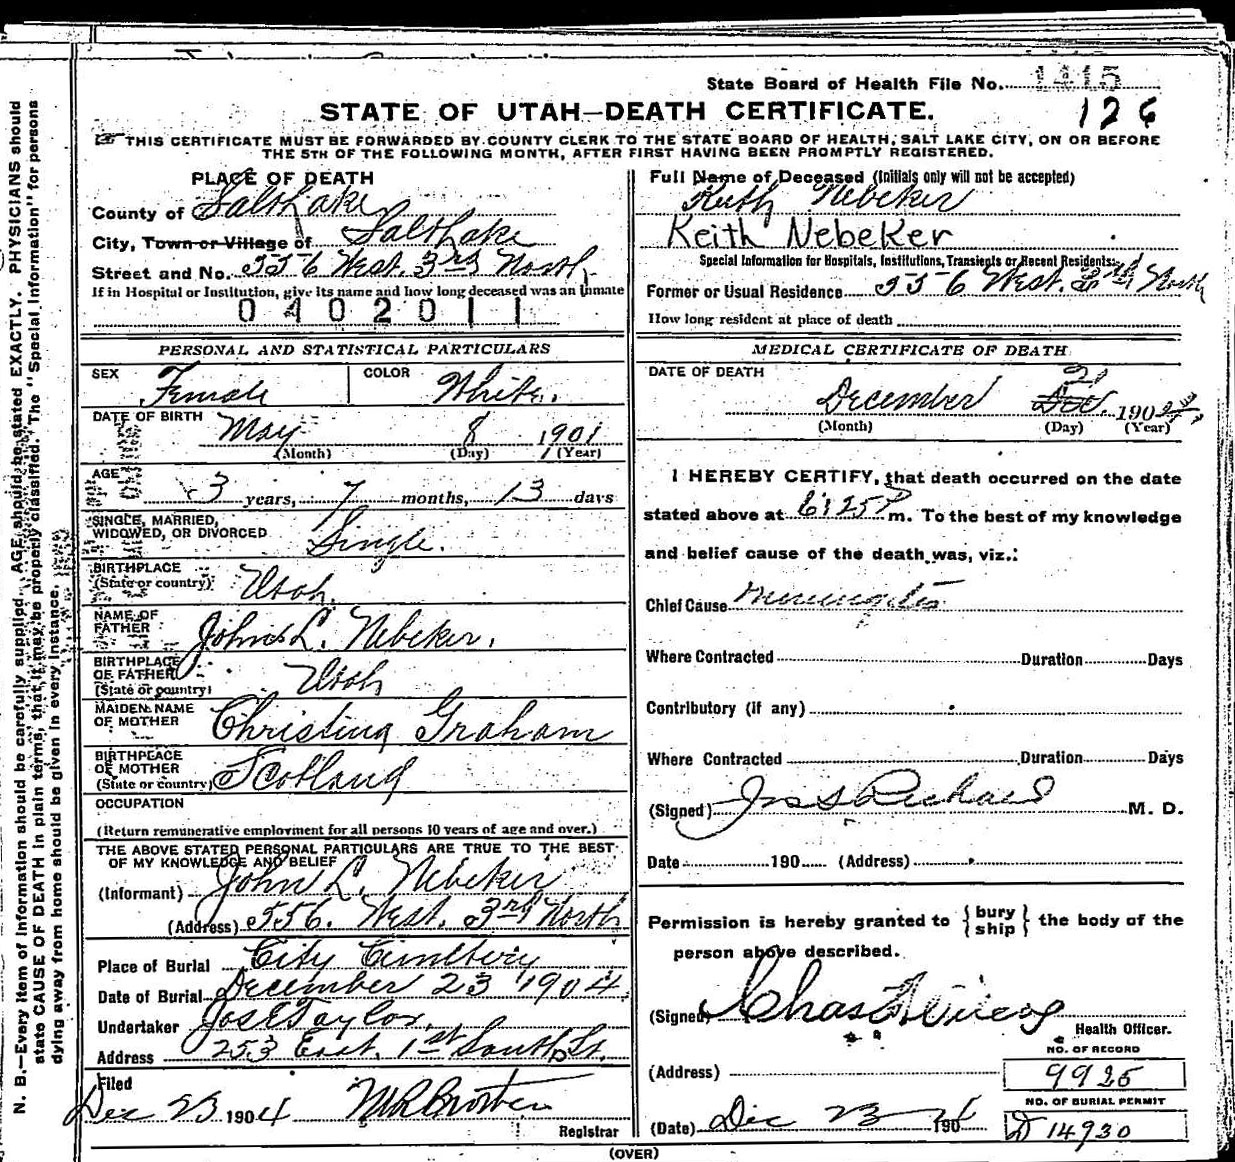 State Board of Health File No. 1415
STATE OF UTAH—DEATH CERTIFICATE.
126
THIS CERTIFICATE MUST BE FORWARDED BY COUNTY CLERK TO THE STATE BOARD OF HEALTH, SALT LAKE CITY, ON OR BEFORE
THE 5TH OF THE FOLLOWING MONTH, AFTER FIRST HAVING BEEN PROMPTLY REGISTERED.
PLACE OF DEATH
County of Salt Lake
City, Town or Village of Salt Lake
Street and No. 556 West. 3rd North
If in Hospital or Institution, give its name and how long deceased was an inmate
0402011
PERSONAL AND STATISTICAL PARTICULARS
SEX Female COLOR White.
DATE OF BIRTH May 8 1901
(Month) (Day) (Year)
AGE 3 years, 7 months, 13 days
SINGLE, MARRIED,
WIDOWED, OR DIVORCED Single.
BIRTHPLACE
(State or country) Utah.
NAME OF
FATHER John L. Nebeker.
BIRTHPLACE
OF FATHER
(State or country) Utah
MAIDEN NAME
OF MOTHER Christina Graham
BIRTHPLACE
OF MOTHER
(State or country) Scotland
OCCUPATION
(Return remunerative employment for all persons 10 years of age and over.)
THE ABOVE STATED PERSONAL PARTICULARS ARE TRUE TO THE BEST
OF MY KNOWLEDGE AND BELIEF
(Informant) John L. Nebeker
(Address) 556. West. 3rd North
Place of Burial City Cemetery
Date of Burial December 23 1904
Undertaker Jos E Taylor.
Address 253 East. 1st South St.
Filed
Dec 23 1904
Registrar
Full Name of Deceased (Initials only will not be accepted)
Ruth Nebeker
Keith Nebeker
Special Information for Hospitals, Institutions, Transients or Recent Residents:
Former or Usual Residence 556 West. 3rd North
How long resident at place of death
MEDICAL CERTIFICATE OF DEATH
DATE OF DEATH 21
December Dec. 190
(Month) (Day) (Year)
I HEREBY CERTIFY, that death occurred on the date
stated above at 6:25 P m. To the best of my knowledge
and belief cause of the death was, viz.:
Chief Cause meningitis
Where Contracted Duration Days
Contributory (if any)
Where Contracted Duration Days
(Signed) Jos S Richards M. D.
Date 190 (Address)
Permission is hereby granted to {bury
ship} the body of the
person above described.
(Signed) Chas
Health Officer.
NO. OF RECORD
(Address) 9925
NO. OF BURIAL PERMIT
(Date) Dec 23 1904 D 14930
(OVER)
N. B.—Every item of information should be carefully supplied. AGE should be stated EXACTLY. PHYSICIANS should
state CAUSE OF DEATH in plain terms, that it may be properly classified. The "Special Information" for persons
dying away from home should be given in every instance.